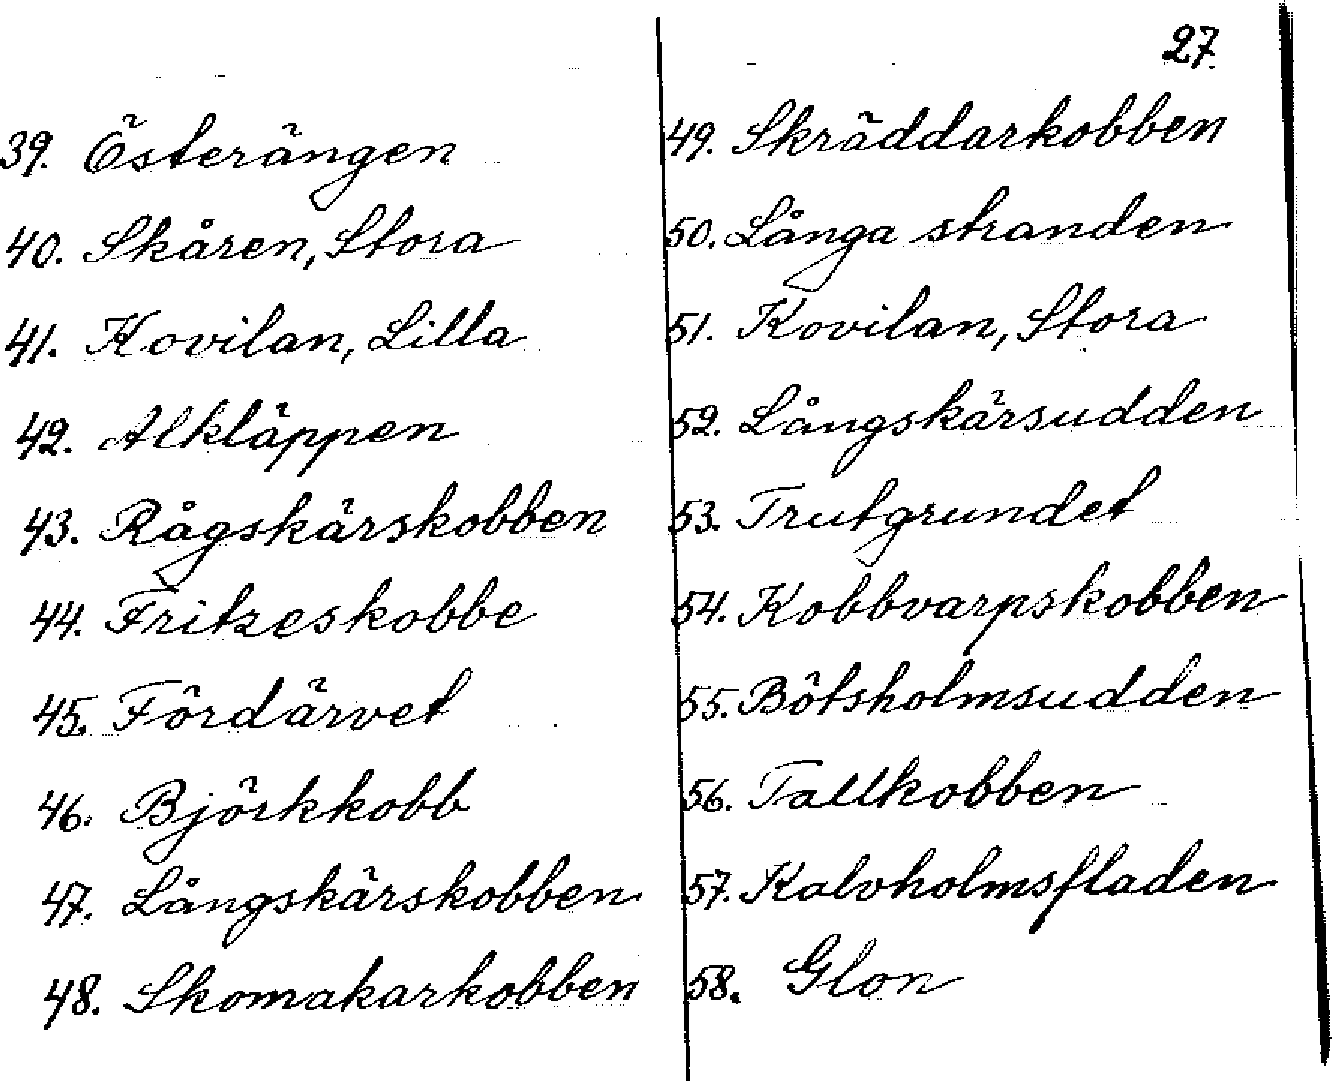 27.
39. Österängen
40. Skåren, Stora
41. Kovilan, Lilla
42. Alkläppen
43. Rågskärskobben
44. Fritzeskobbe
45. Fördärvet
46. Björkkobb
47. Långskärskobben
48. Skomakarkobben
49. Skräddarkobben
50. Långa stranden
51. Kovilan, Stora
52. Långskärsudden
53. Trutgrundet
54. Kobbvarpskobben
55. Bötsholmsudden
56. Tallkobben
57. Kalvholmsfladen
58. Glon